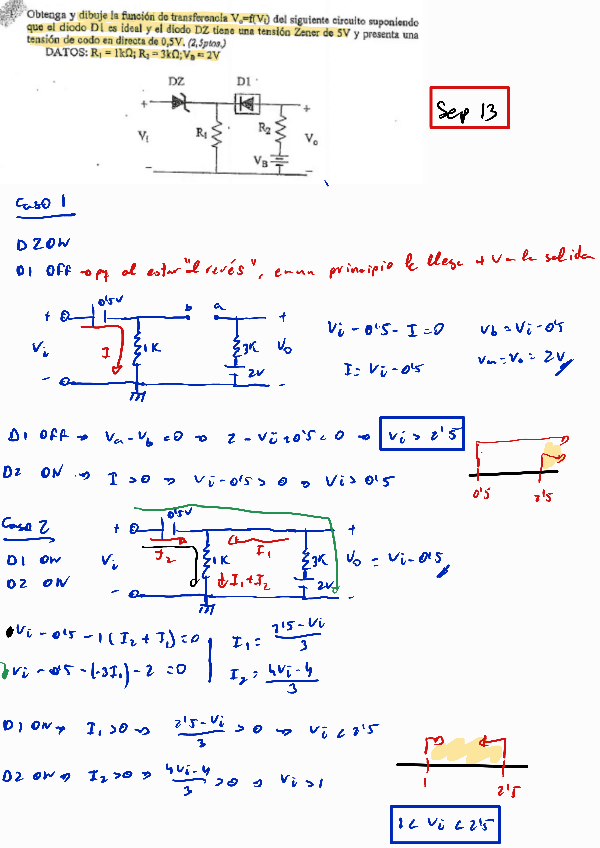 Obtenga y dibuje la función de transferencia Vo=f(Vi) del siguiente circuito suponiendo
que el diodo D1 es ideal y el diodo DZ tiene una tensión Zener de 5V y presenta una
tensión de codo en directa de 0,5V. (2,5ptos.)
DATOS: R1 = 1kΩ; R2 = 3kΩ; VB = 2V
DZ D1
+ +
Vi R1 R2 Vo
VB
- -
Sep 13
Caso 1
DZ ON
D1 Off → pq al estar "al revés", en un principio le llega + V a la salida
0'5V b a
+ +
Vi I 1K 3K Vo
2V
- -
Vi - 0'5 - I = 0 Vb = Vi - 0'5
I = Vi - 0'5 Va = Vo = 2V
D1 Off → Va - Vb < 0 → 2 - Vi + 0'5 < 0 → Vi > 2'5
DZ ON → I > 0 → Vi - 0'5 > 0 → Vi > 0'5
0'5 2'5
Caso 2
D1 ON
DZ ON
0'5V
+ +
Vi I2 1K I1 3K Vo = Vi - 0'5
I1 + I2 2V
- -
Vi - 0'5 - 1(I2 + I1) = 0 I1 = 2'5 - Vi / 3
Vi - 0'5 - (-3I1) - 2 = 0 I2 = 4Vi - 4 / 3
D1 ON → I1 > 0 → 2'5 - Vi / 3 > 0 → Vi < 2'5
DZ ON → I2 > 0 → 4Vi - 4 / 3 > 0 → Vi > 1
1 2'5
1 < Vi < 2'5